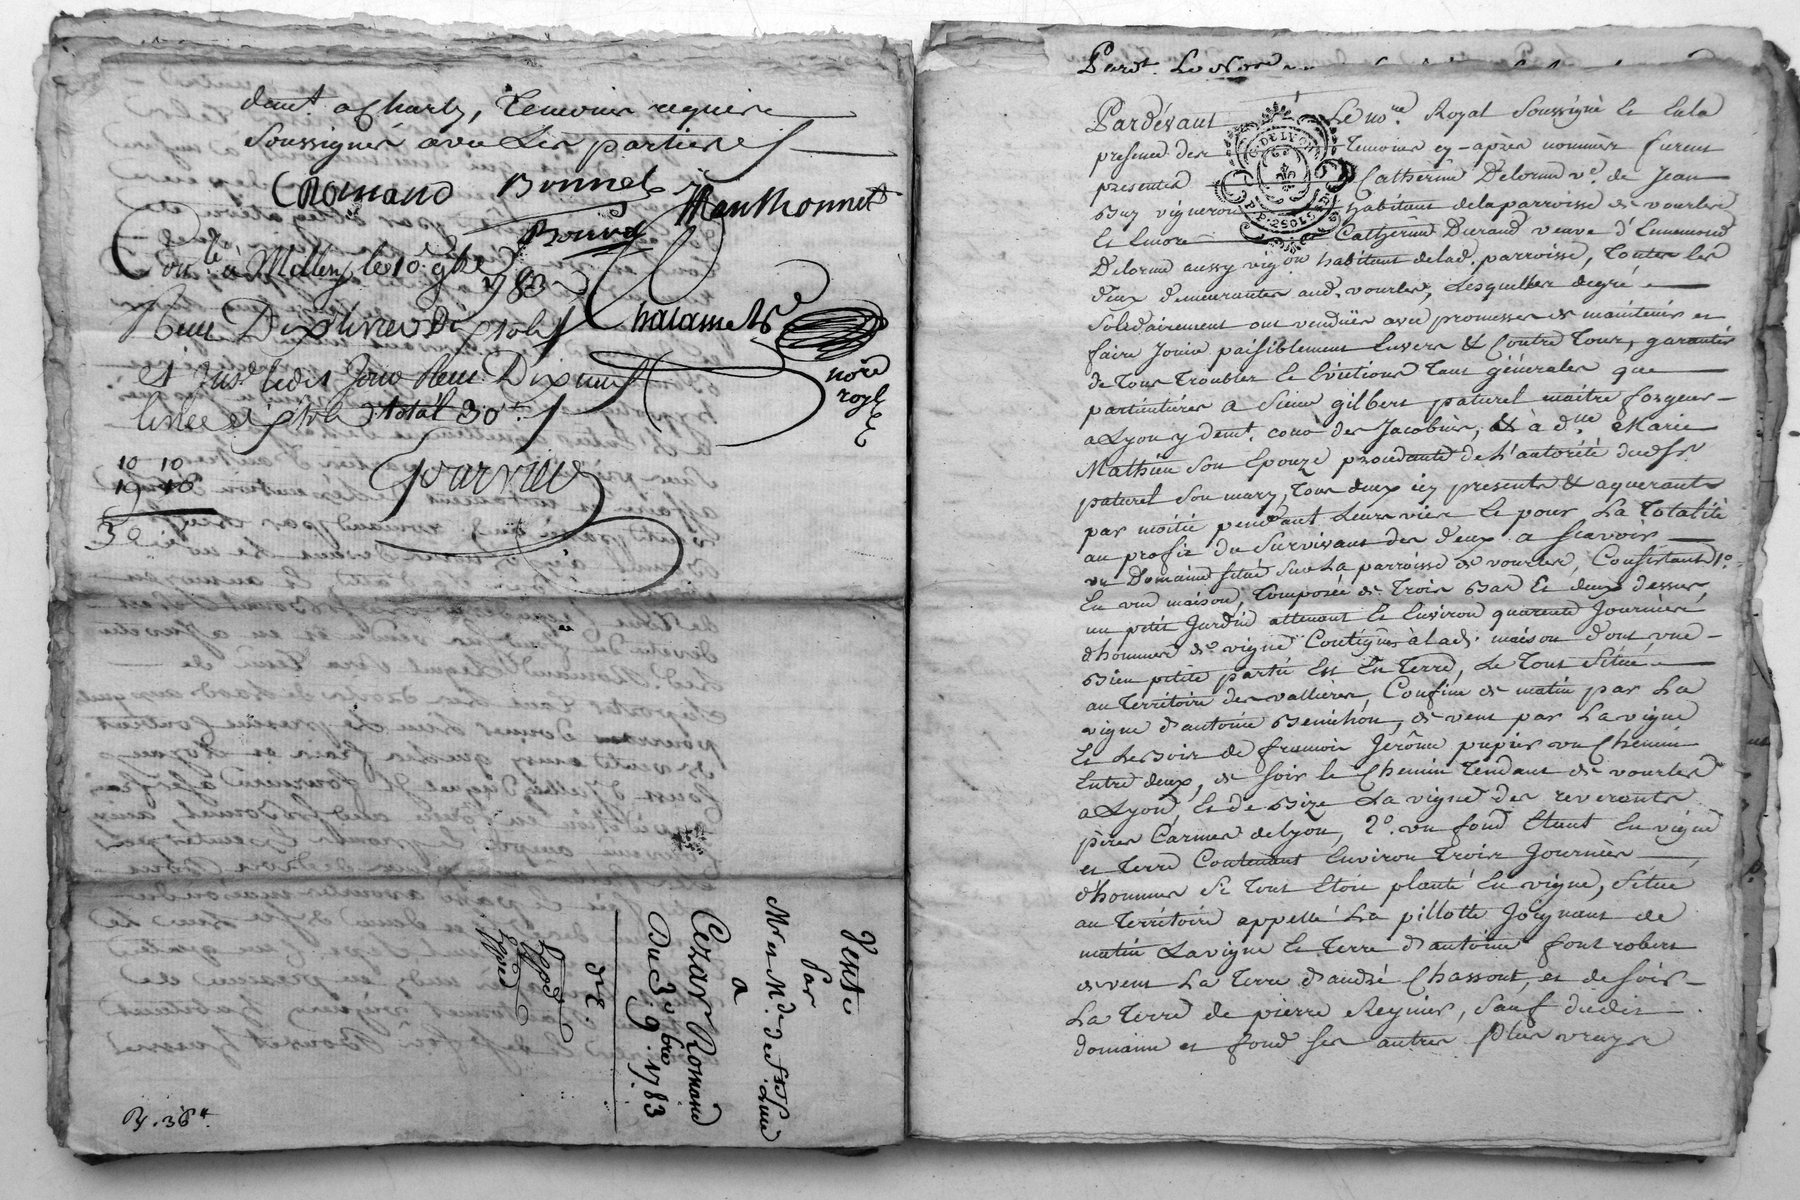 demt. a Charly, Temoins requis
Soussignés avec Les parties
Romand Bonnet Manthonnet
Bonnet
Con.lé à Millery le 10 9bre
1783
Reçu Dix livres Dix sols
Chalamel
nore
royl
et Jns.é ledit Jour Reçu Dix neuf
livres total 30
10 10
19 10
30
Gourville
Vente
Par
Mr et Md.
a
Cezar Romand
Du 3 9.bre 1783
Exped
Expéd
R. 36
Pard.t Le No.re
Pardevant Le no.re Royal Soussigné Et En la
presence des Temoins cy-après nommés furent
presentes Catherine Delorme v.e de Jean
vigneron habitant de la parroisse de vourles
Et Encore Catherine Durand veuve d'Ennemond
Delorme aussy vig.on habitant de lad. parroisse, Toutes les
deux demeurantes aud. vourles, Lesquelles de gré
Solidairement ont vendües avec promesses de maintenir et
faire Jouir paisiblement Envers & Contre Tous, garantir
de Tous Troubles Et Evictions Tant générales que
particulières a Sieur gilbert paturel maitre forgeur
a Lyon y demt. des Jacobins, & à d.me Marie
Mathieu Son Epouze procedante de L'autorité dud. Sr.
paturel Son mary, Tous deux icy presents & aquerants
par moitié pendant Leurs vies Et pour La Totalité
au profit du Survivant des deux a Scavoir
un Domaine Situé Sur La parroisse de vourles, Consistant 1.o
En une maison, Composée de Trois Bas Et deux dessus,
un petit Jardin attenant Et Environ quarente Journées
d'hommes de vigne Contigües à lad. maison dont une
Bien petite partie Est En Terre, Le Tout Situé
au Territoire des vallieres, Confine de matin par La
vigne d'antoine Benichon, de vent par La vigne
Et Les Bois de francois Jérôme pupier un Chemin
Entre deux, de Soir le Chemin Tendant de vourles
a Lyon, Et de Bize La vigne des reverents
pères Carmes de Lyon, 2.o un fond Etant En vigne
et Terre Contenant Environ Trois Journées
d'hommes Si Tout Etoit planté En vigne, Situé
au Territoire appellé La pillotte Joignant de
matin La vigne Et Terre d'antoine font robert
de vent La Terre d'andré Chassout, et de Soir
La Terre de pierre Reynier, Sauf dudit
domaine et fond Ses autres plus vrays